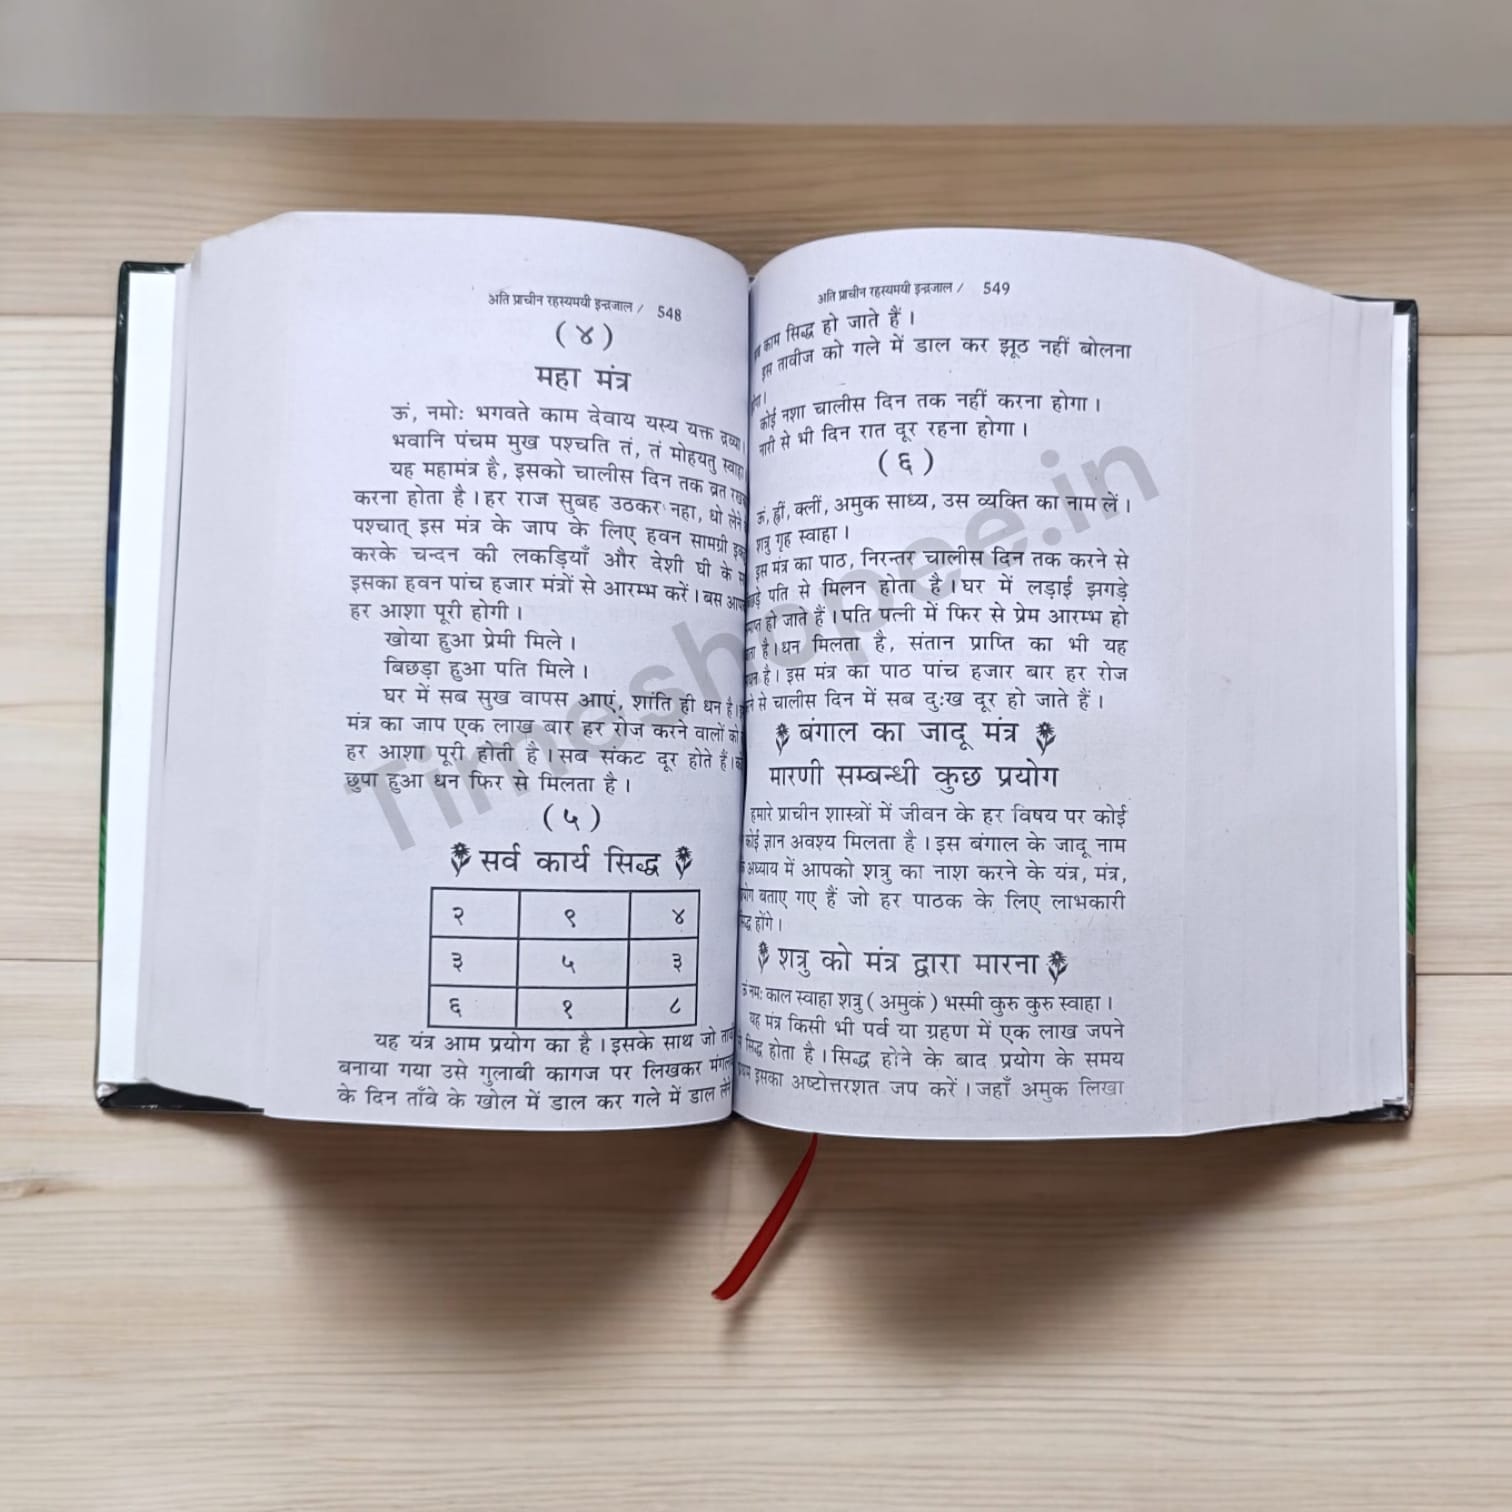 अति प्राचीन रहस्यमयी इन्द्रजाल / 548
(४)
महा मंत्र
ऊं, नमोः भगवते काम देवाय यस्य यक्त द्रव्या।
भवानि पंचम मुख पश्चति तं, तं मोहयतु स्वाहा
यह महामंत्र है, इसको चालीस दिन तक व्रत
करना होता है। हर राज सुबह उठकर नहा, धो लेने
पश्चात् इस मंत्र के जाप के लिए हवन सामग्री
करके चन्दन की लकड़ियाँ और देशी घी के
इसका हवन पांच हजार मंत्रों से आरम्भ करें। बस
हर आशा पूरी होगी।
खोया हुआ प्रेमी मिले।
बिछड़ा हुआ पति मिले।
घर में सब सुख वापस आएं, शांति ही धन है।
मंत्र का जाप एक लाख बार हर रोज करने वालों को
हर आशा पूरी होती है। सब संकट दूर होते हैं।
छुपा हुआ धन फिर से मिलता है।
(५)
सर्व कार्य सिद्ध
२ ९ ४
३ ५ ३
६ १ ८
यह यंत्र आम प्रयोग का है। इसके साथ जो
बनाया गया उसे गुलाबी कागज पर लिखकर
के दिन ताँबे के खोल में डाल कर गले में डाल लेने
अति प्राचीन रहस्यमयी इन्द्रजाल / 549
काम सिद्ध हो जाते हैं।
इस तावीज को गले में डाल कर झूठ नहीं बोलना
कोई नशा चालीस दिन तक नहीं करना होगा।
नारी से भी दिन रात दूर रहना होगा।
(६)
ऊं, ह्रीं, क्लीं, अमुक साध्य, उस व्यक्ति का नाम लें।
शत्रु गृह स्वाहा।
इस मंत्र का पाठ, निरन्तर चालीस दिन तक करने से
पति से मिलन होता है। घर में लड़ाई झगड़े
हो जाते हैं। पति पत्नी में फिर से प्रेम आरम्भ हो
है। धन मिलता है, संतान प्राप्ति का भी यह
है। इस मंत्र का पाठ पांच हजार बार हर रोज
से चालीस दिन में सब दुःख दूर हो जाते हैं।
बंगाल का जादू मंत्र
मारणी सम्बन्धी कुछ प्रयोग
हमारे प्राचीन शास्त्रों में जीवन के हर विषय पर कोई
कोई ज्ञान अवश्य मिलता है। इस बंगाल के जादू नाम
अध्याय में आपको शत्रु का नाश करने के यंत्र, मंत्र,
बताए गए हैं जो हर पाठक के लिए लाभकारी
होंगे।
शत्रु को मंत्र द्वारा मारना
ऊं नमः काल स्वाहा शत्रु (अमुकं) भस्मी कुरु कुरु स्वाहा।
यह मंत्र किसी भी पर्व या ग्रहण में एक लाख जपने
सिद्ध होता है। सिद्ध होने के बाद प्रयोग के समय
इसका अष्टोत्तरशत जप करें। जहाँ अमुक लिखा
Timeshopee.in